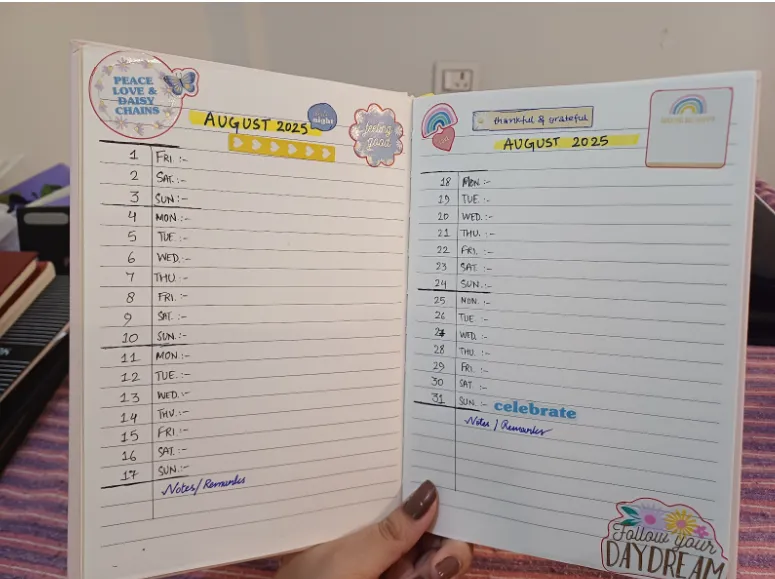 PEACE
LOVE &
DAISY
CHAINS
AUGUST 2025
night
feeling
good
1 FRI :-
2 SAT. :-
3 SUN :-
4 MON. :-
5 TUE :-
6 WED. :-
7 THU. :-
8 FRI. :-
9 SAT. :-
10 SUN. :-
11 MON. :-
12 TUE. :-
13 WED. :-
14 THU. :-
15 FRI. :-
16 SAT. :-
17 SUN. :-
Notes/Remarks
thankful & grateful
AUGUST 2025
18 MON :-
19 TUE. :-
20 WED. :-
21 THU. :-
22 FRI. :-
23 SAT. :-
24 SUN. :-
25 MON. :-
26 TUE. :-
27 WED. :-
28 THU. :-
29 FRI. :-
30 SAT. :-
31 SUN. :- celebrate
Notes / Remarks
Follow your
DAYDREAM